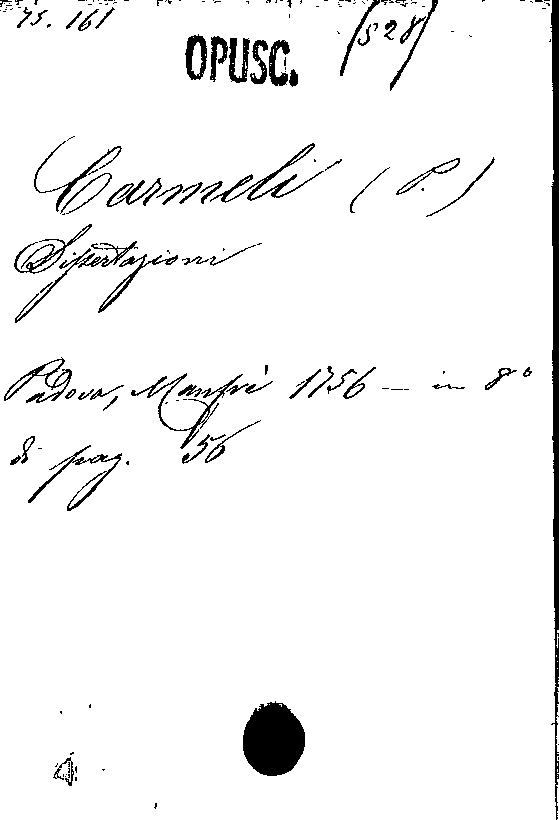 75. 161
(528)
OPUSC.
Carmeli (P.)
Dissertazioni
Padova, Manfrè 1756 — in 8°
di pag. 56